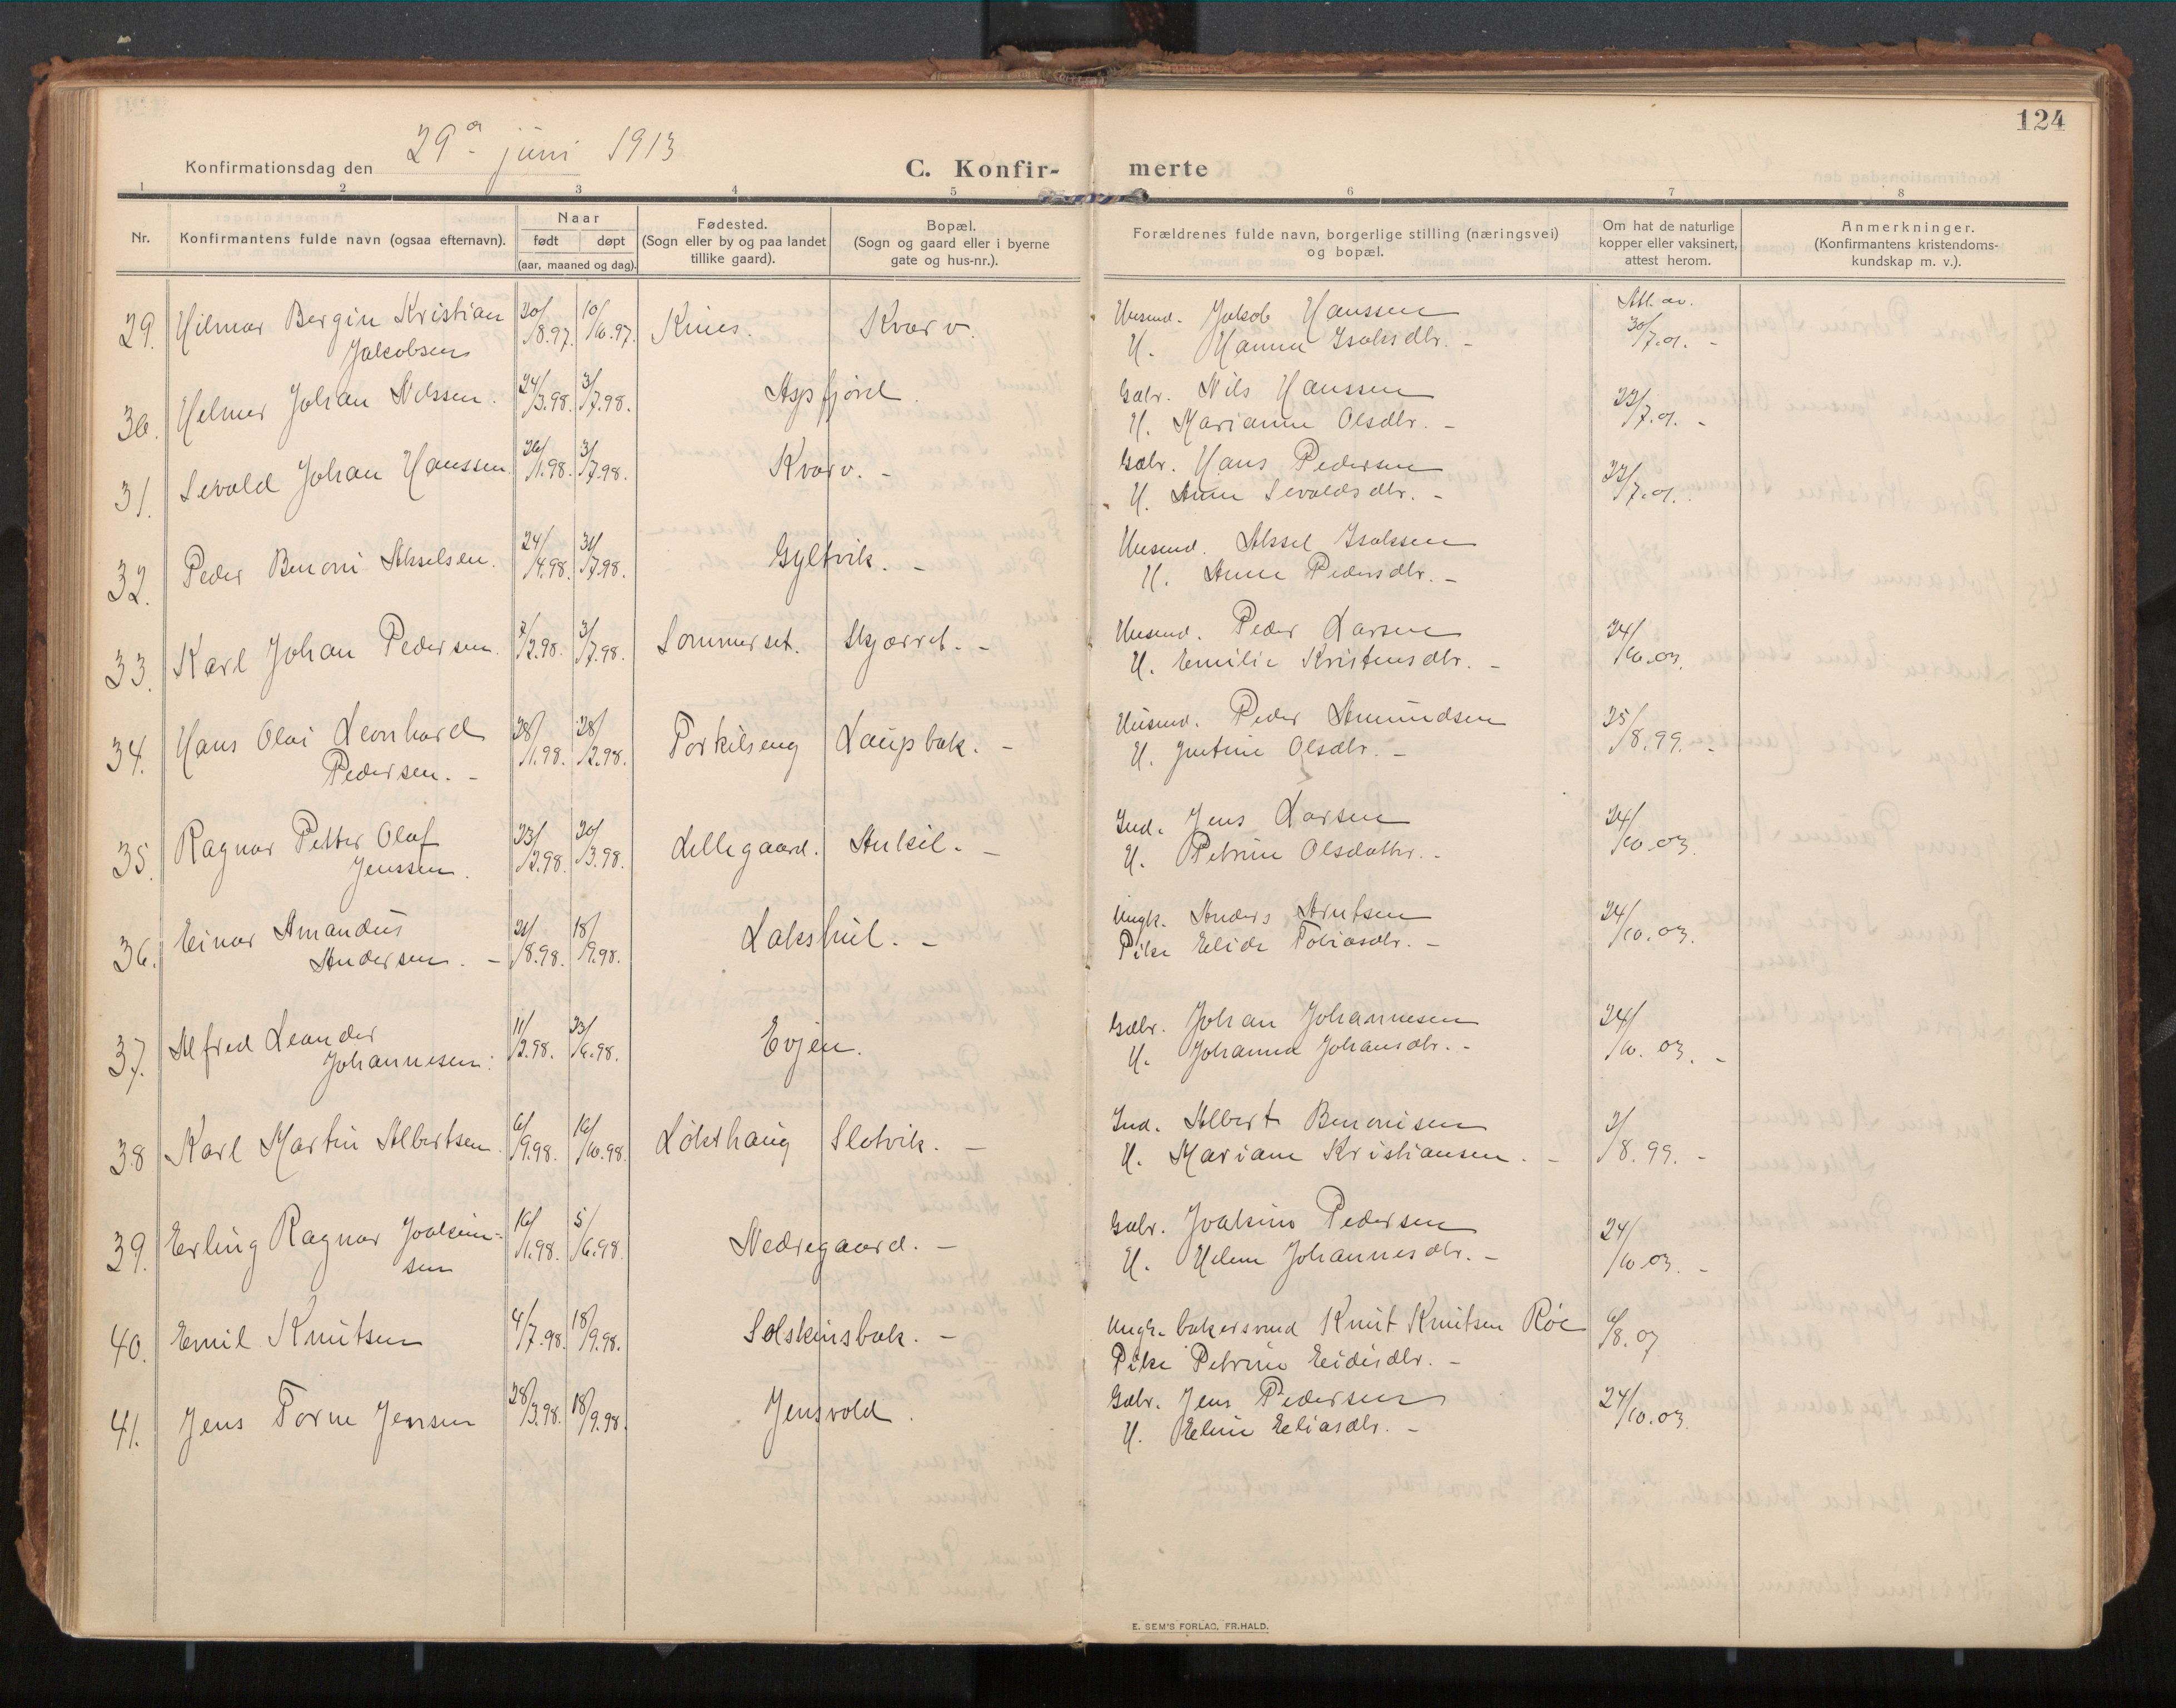 124
29de juni 1913
Konfirmationsdag den
C. Konfir-
merte
1 2 3 4 5 6 7 8
Nr.
Konfirmantens fulde navn (ogsaa efternavn).
Naar
født døpt
(aar, maaned og dag).
Fødested.
(Sogn eller by og paa landet
tillike gaard).
Bopæl.
(Sogn og gaard eller i byerne
gate og hus-nr.).
Forældrenes fulde navn, borgerlige stilling (næringsvei)
og bopæl.
Om hat de naturlige
kopper eller vaksinert,
attest herom.
Anmerkninger.
(Konfirmantens kristendoms-
kundskap m. v.).
29. Hilmar Bergin Kristian 30/8.97. 10/10.97. Knes. Kvarv. Husmd. Jakob Hanssen Att. av.
Jakobsen H. Hanna Isaksdtr. - 30/7.01. -
30. Helmer Johan Nilssen. 24/3.98. 3/7.98. Aspfjord. Gbr. Nils Hanssen 23/7.01. -
H. Marianne Olsdtr. -
31. Sevald Johan Hanssen. 26/1.98. 3/7.98. Kvarv. - Gbr. Hans Pedersen 23/7.01.
H. Anne Sevaldsdtr. -
32. Peder Benoni Akselsen. 24/4.98. 31/7.98. Gyltvik. - Husmd. Aksel Isaksen
H. Anne Pedersdtr. -
33. Karl Johan Pedersen. 7/2.98. 3/7.98. Sommerset. Skjærret. - Husmd. Peder Larsen 24/10.03.
H. Emilie Kristensdtr. -
34. Hans Olai Leonhard 28/1.98. 28/2.98. Torkilseng Laupbak. - Husmd. Peder Amundsen 25/8.99. -
Pedersen. - H. Justine Olsdtr. -
35. Ragnar Petter Olaf 23/2.98. 20/3.98. Lillegaard. Ankil. - Ind. Jens Larsen 24/10.03.
Jenssen. H. Petrine Olsdattr. -
36. Einar Amandus 21/8.98. 18/9.98. Lakshul. - Ungk. Anders Arntsen 24/10.03.
Andersen. - Pike Elida Tobiasdtr. -
37. Alfred Leander 11/2.98. 23/6.98. Evjen. Gbr. Johan Johannesen 24/10.03. -
Johannesen. H. Johanna Johansdtr. -
38 Karl Martin Albertsen. 6/9.98. 16/10.98. Løkthaug Slotvik. - Ind. Albert Benonisen 3/8.99. -
H. Mariane Kristiansen. -
39. Erling Ragnar Joakim- 16/1.98. 5/6.98. Nedregaard. - Gbr. Joakim Pedersen 24/10.03. -
sen H. Helene Johannesdtr. -
40. Emil Knutsen 4/7.98. 18/9.98. Solskinsbak. - Ungk. bakersvend Knut Knutsen Röe 6/8.07
Pike Petrine Eidisdtr. -
41. Jens Torne Jensen 28/3.98. 18/9.98. Jensvold. Gbr. Jens Pedersen 24/10.03.
H. Eline Eliasdtr. -
E. SEM'S FORLAG, FR.HALD.